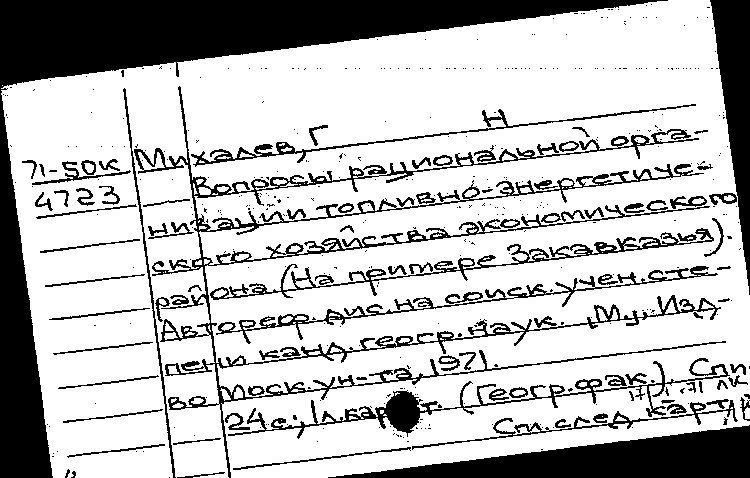 71-50к Михалев, Г Н
4723 Вопросы рациональной орга-
низации топливно-энергетиче-
ского хозяйства экономического
района. (На примере Закавказья).
Автореф. дис. на соиск. учен. сте-
пени канд. геогр. наук. М., Изд-
во Моск. ун-та, 1971.
24 с.; 1 л. карт. (Геогр. фак.).
Сп. след. карт.